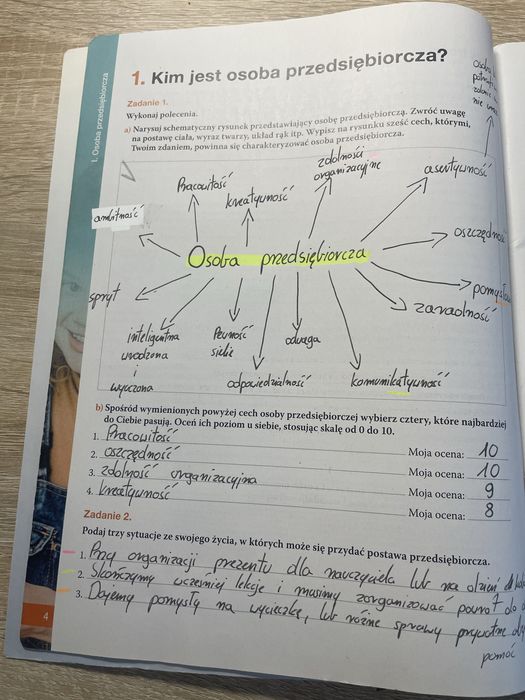 1. Osoba przedsiębiorcza
1. Kim jest osoba przedsiębiorcza?
Zadanie 1.
Wykonaj polecenia.
a) Narysuj schematyczny rysunek przedstawiający osobę przedsiębiorczą. Zwróć uwagę
na postawę ciała, wyraz twarzy, układ rąk itp. Wypisz na rysunku sześć cech, którymi,
Twoim zdaniem, powinna się charakteryzować osoba przedsiębiorcza.
nie
ambitność
Pracowitość
kreatywność
zdolności
organizacyjne
asertywność
oszczędność
Osoba przedsiębiorcza
spryt
zaradność
inteligentna
wrodzona
i
wyuczona
Pewność
siebie
odwaga
odpowiedzialność
komunikatywność
b) Spośród wymienionych powyżej cech osoby przedsiębiorczej wybierz cztery, które najbardziej
do Ciebie pasują. Oceń ich poziom u siebie, stosując skalę od 0 do 10.
1. Pracowitość Moja ocena: 10
2. oszczędność Moja ocena: 10
3. zdolność organizacyjna Moja ocena: 9
4. kreatywność Moja ocena: 8
Zadanie 2.
Podaj trzy sytuacje ze swojego życia, w których może się przydać postawa przedsiębiorcza.
1. Przy organizacji prezentu dla nauczyciela lub na dzień
2. Skończymy wcześniej lekcje i musimy zorganizować powrót do
3. Dajemy pomysły na wycieczkę, lub różne sprawy prywatne
pomóc
4